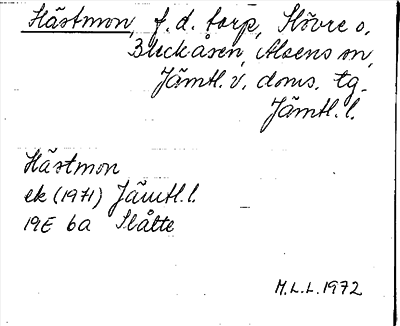 Hästmon, f. d. torp, Hövre o.
Bleckåsen, Alsens sn,
Jämtl. v. doms. tg.
Jämtl. l.
Hästmon
ek (1971) Jämtl. l.
19E 6a Slåtte
M.L.L. 1972